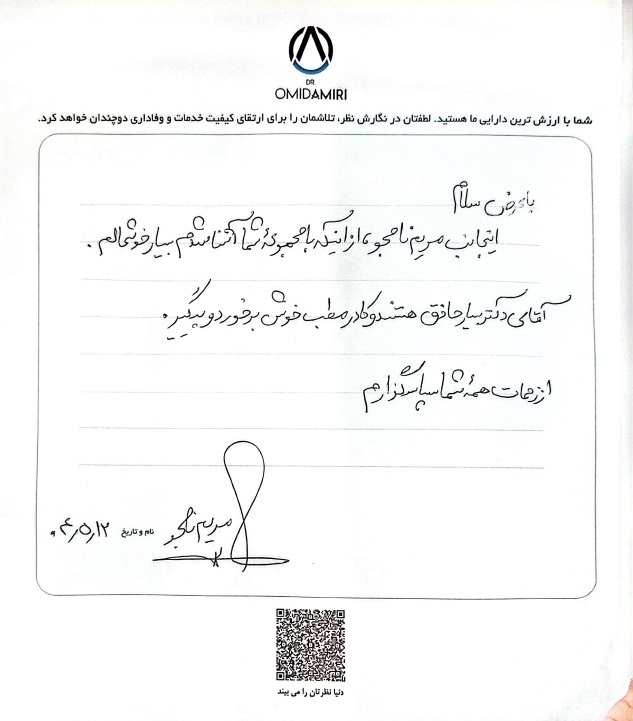 DR.
OMIDAMIRI
شما با ارزش ترین دارایی ما هستید. لطفتان در نگارش نظر، تلاشمان را برای ارتقای کیفیت خدمات و وفاداری دوچندان خواهد کرد.
باعرض سلام
اینجانب مریم نامجو، از اینکه با مجموعهٔ شما آشنا شدم بسیار خوشحالم.
آقای دکتر بسیار حاذق هستند و کادر مطب خوش برخورد و پیگیر.
از زحمات همهٔ شما سپاسگزارم
مریم نامجو
نام و تاریخ ۰۴/۵/۱۲
دنیا نظرتان را می بیند